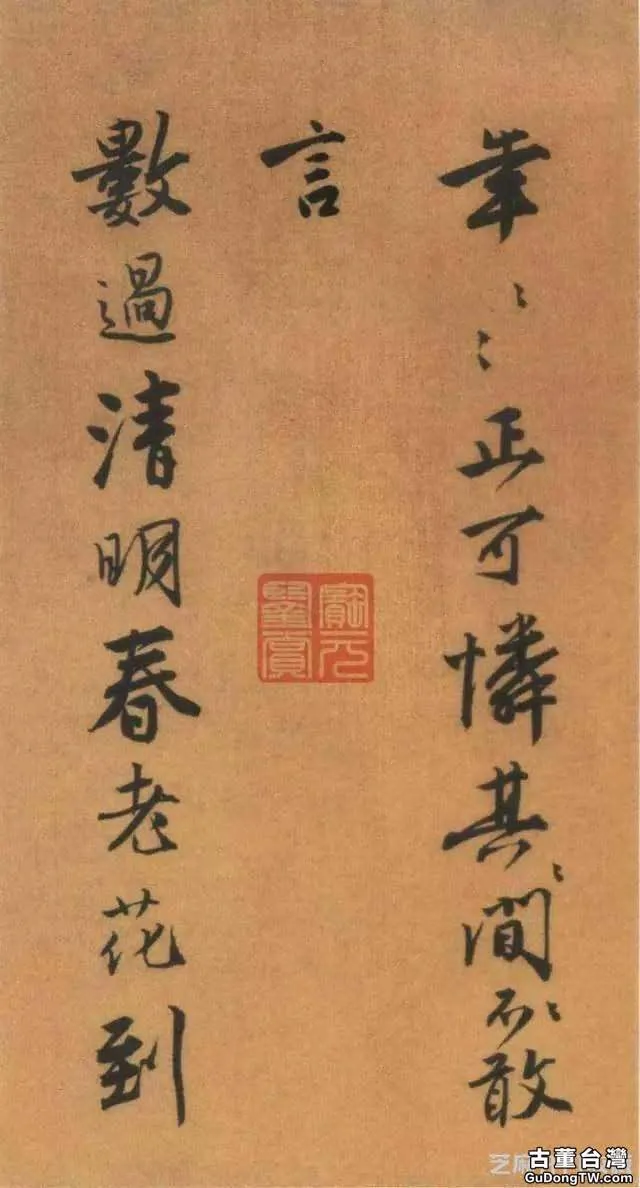 年〻正可憐其間不敢
言
數過清明春老花到
古董台灣
GuDongTW.com